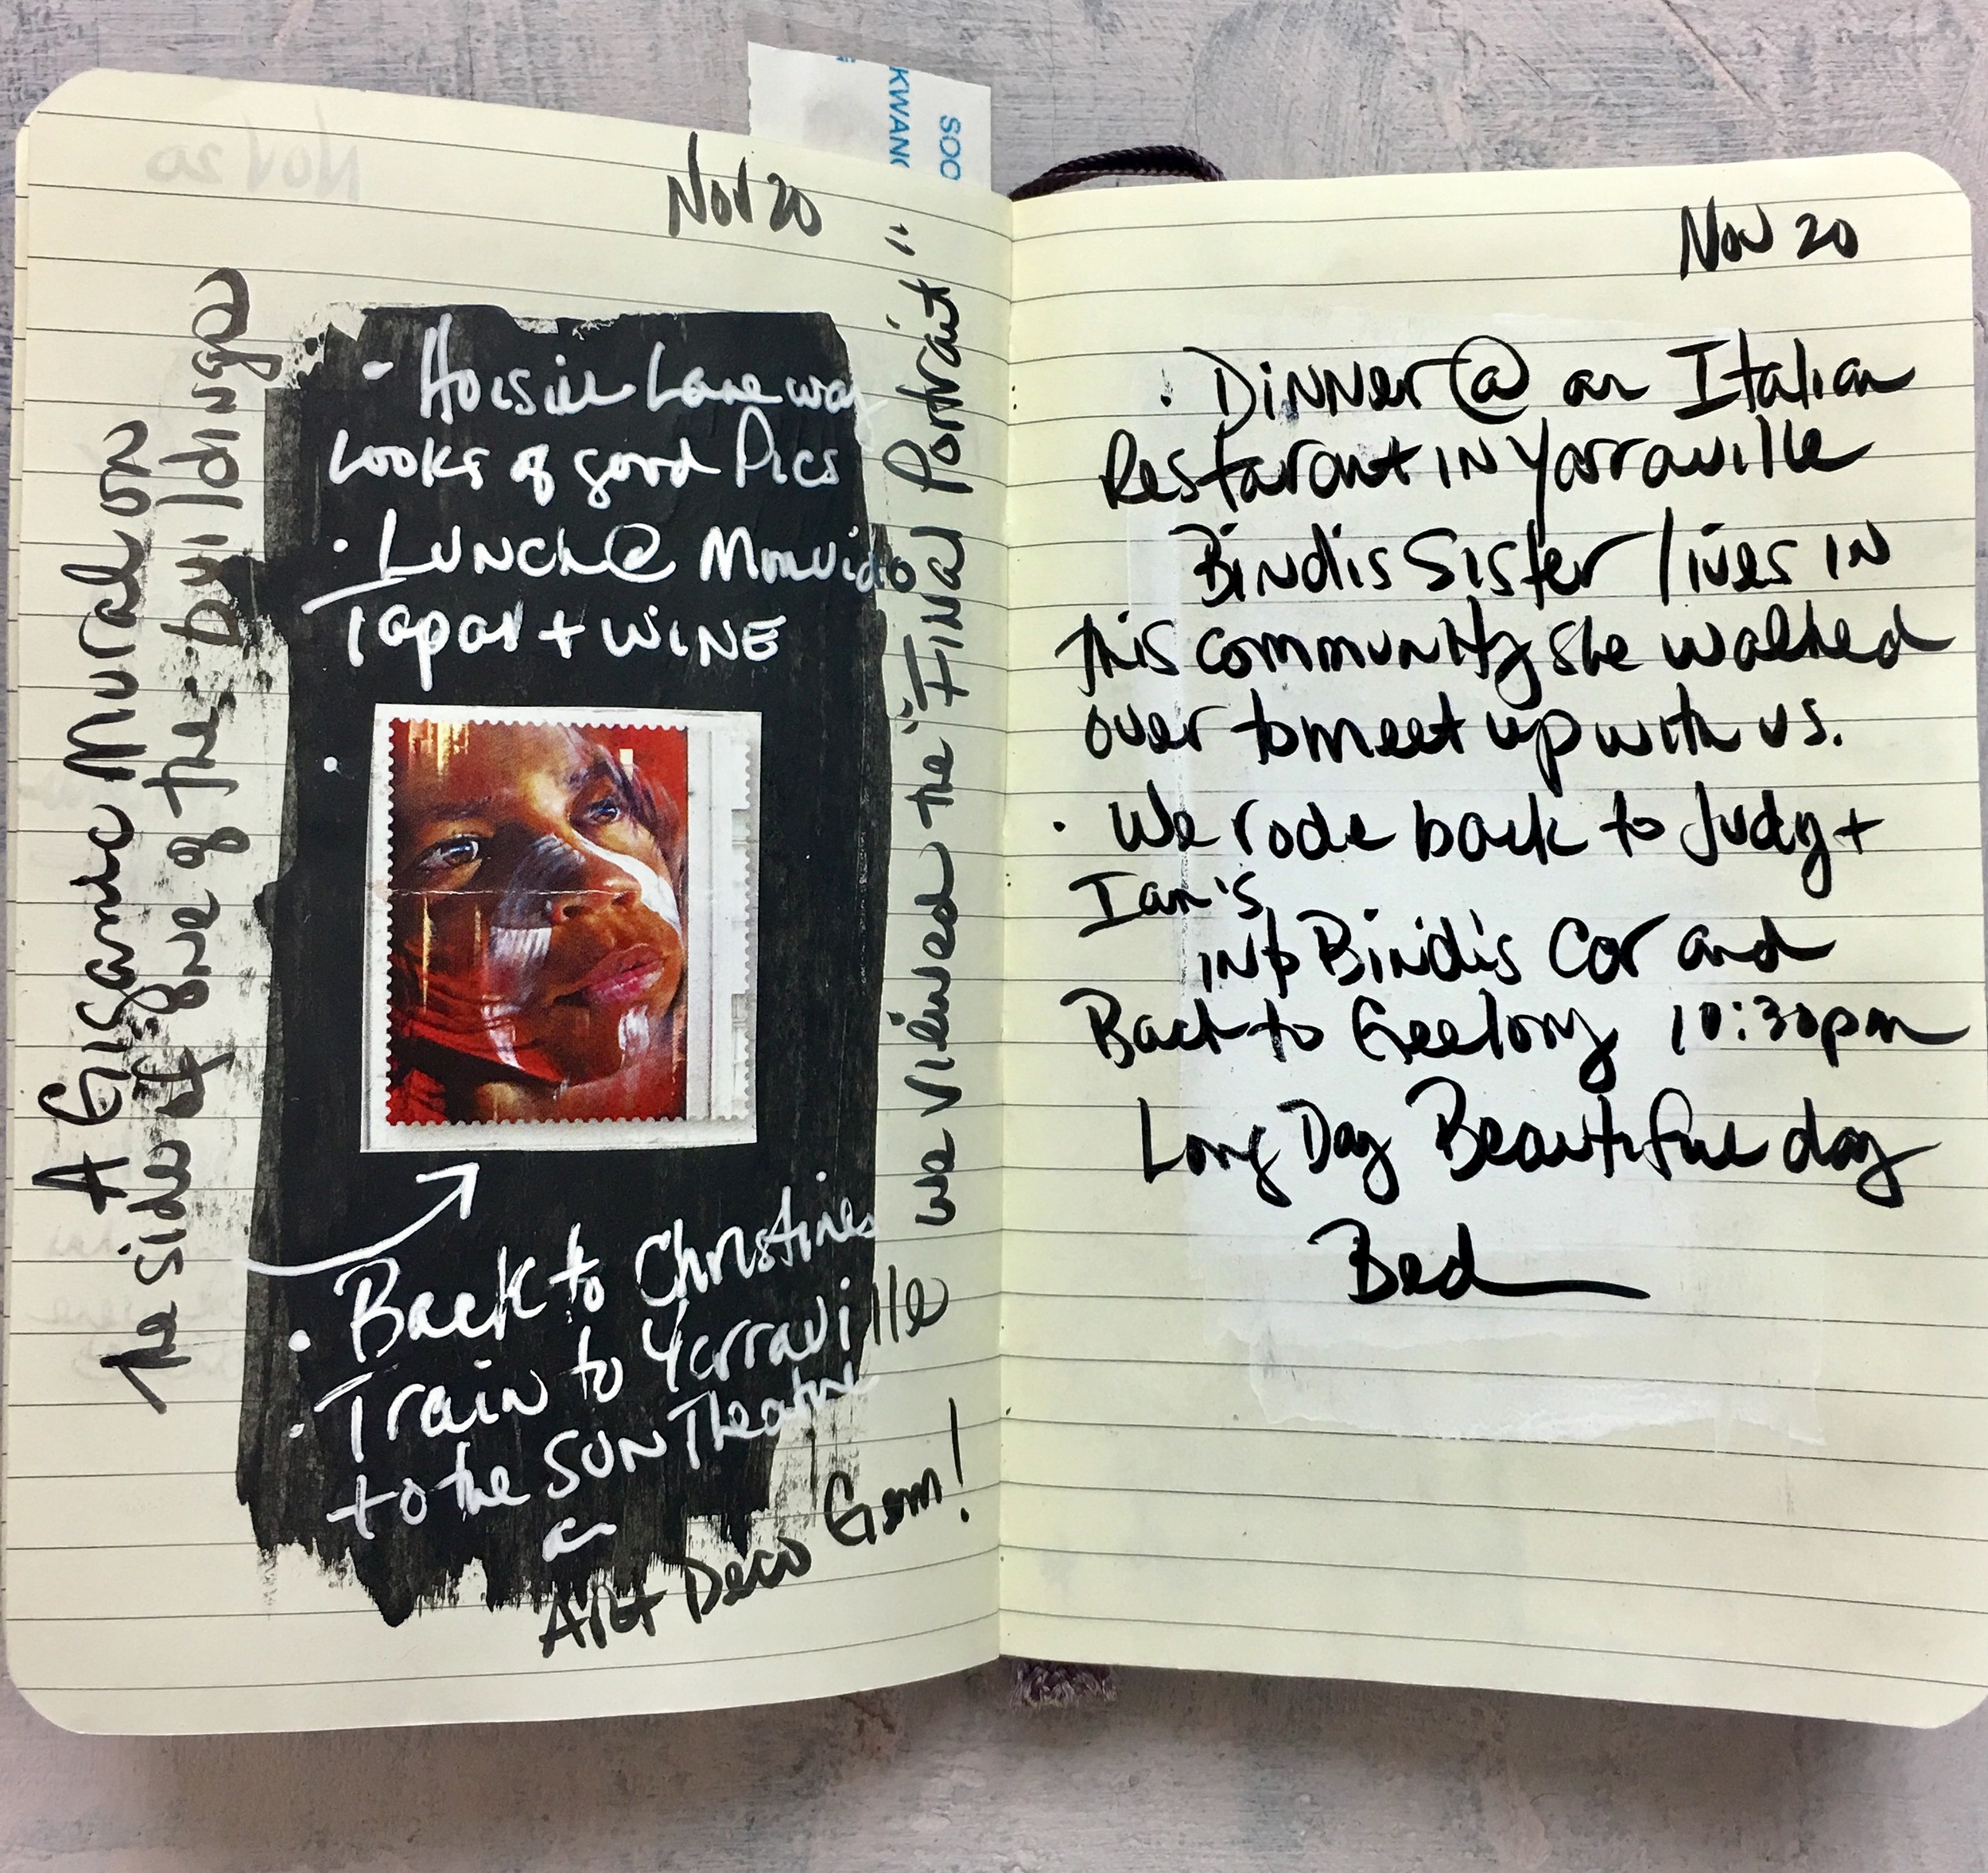 SOO
KWANG
Nov 20
• Hoisier Laneway
Looks of good Pics
• Lunch @ Movida
Tapas + WINE
A Gigantic Mural on
the side of one of the buildings
• Back to Christines
• Train to Yarraville
to the SUN Theatre
an
Art Deco Gem!
we viewed the "Final Portrait"
Nov 20
• Dinner @ an Italian
Restarant IN Yarraville
Bindis Sister lives IN
this community she walked
over to meet up with us.
• We rode back to Judy +
Ian's
into Bindi's Car and
Back to Geelong 10:30pm
Long Day Beautiful day
Bed